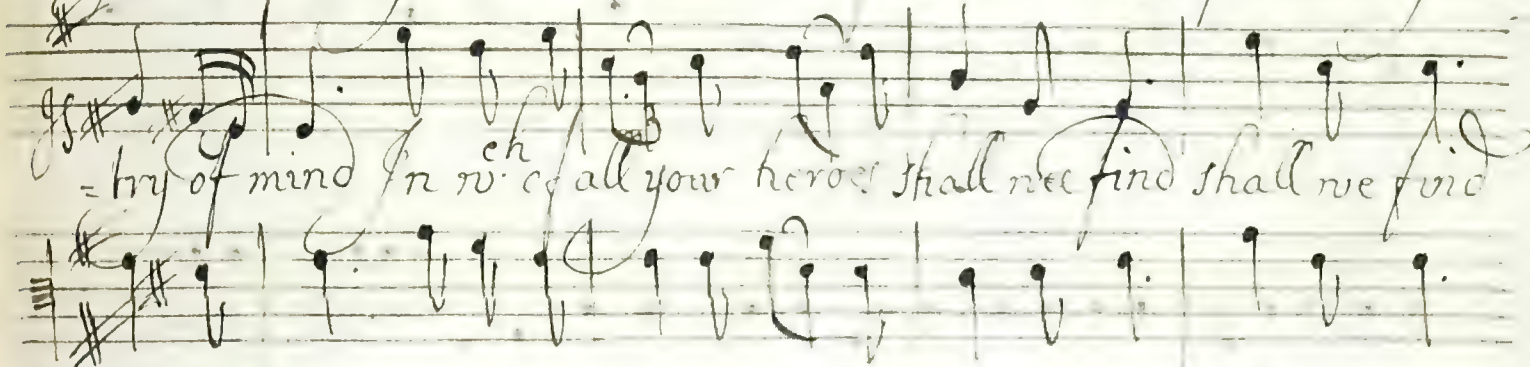 =try of mind In wch of all your heroes shall wee find shall we find